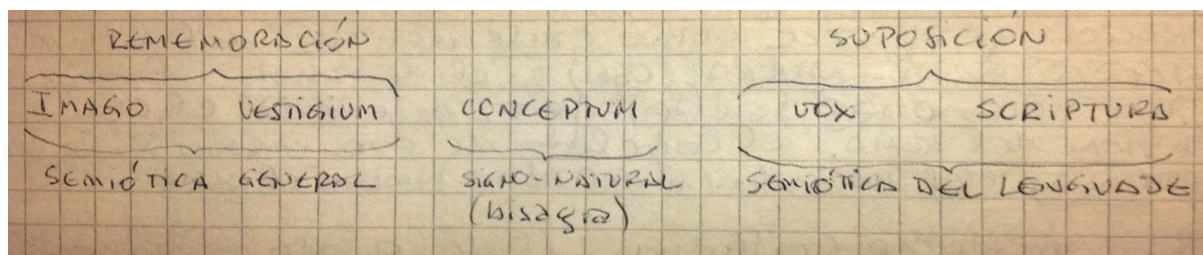 REMEMORACIÓN SUPOSICIÓN
IMAGO VESTIGIUM CONCEPTUM VOX SCRIPTURA
SEMIÓTICA GENERAL SIGNO-NATURAL SEMIÓTICA DEL LENGUAJE
(bisagra)